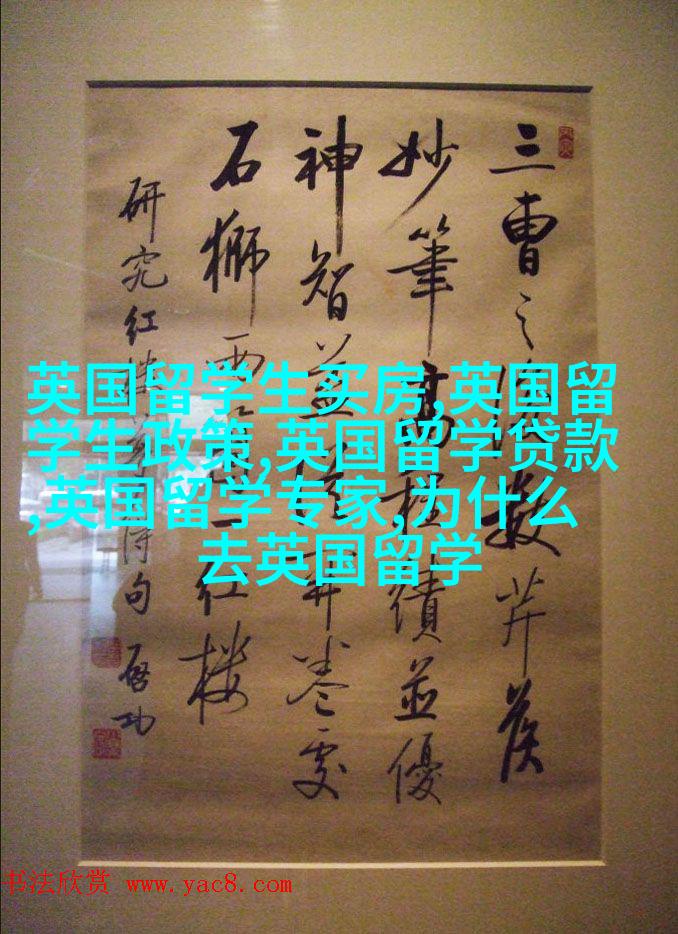 三曹之後数芹侯
妙筆高程績並優
神智益從开卷處
石獅两个一红楼
研究红楼夢得句 启功
英国留学生买房,英国留
学生政策,英国留学贷款
,英国留学专家,为什么
去英国留学
书法欣赏 www.yac8.com